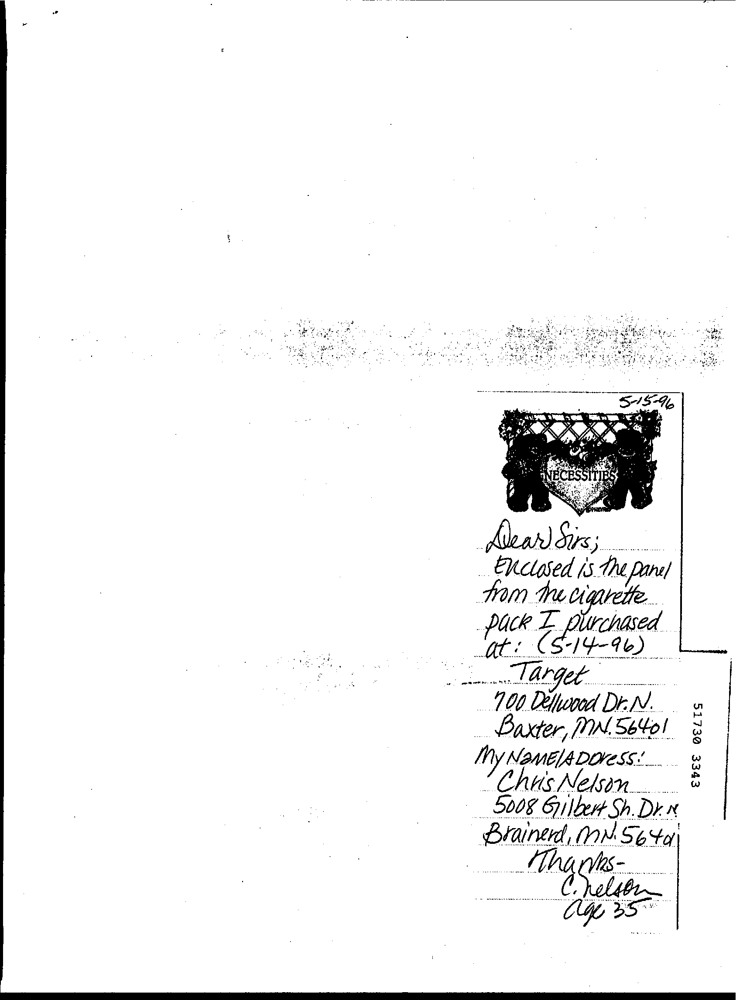 5-15-96
NECESSITIES
Dear Sirs;
Enclosed is the panel
from the cigarette
pack I purchased
at: (5-14-96)
Target
700 Dellwood Dr. N.
Baxter, MN. 56401
My Name/Address:
Chris Nelson
5008 Gilbert Sh. Dr. N
Brainerd, MN. 56401
Thanks-
C. Nelson
age 35
51730 3343